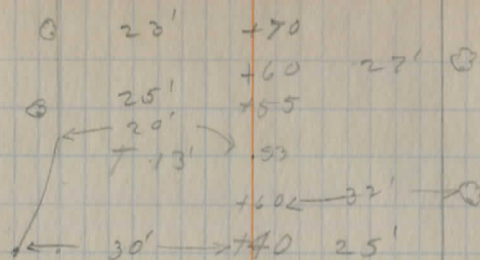 23' +70
+60 27'
25' +55
20'
13' 53
+60 32'
30' +40 25'